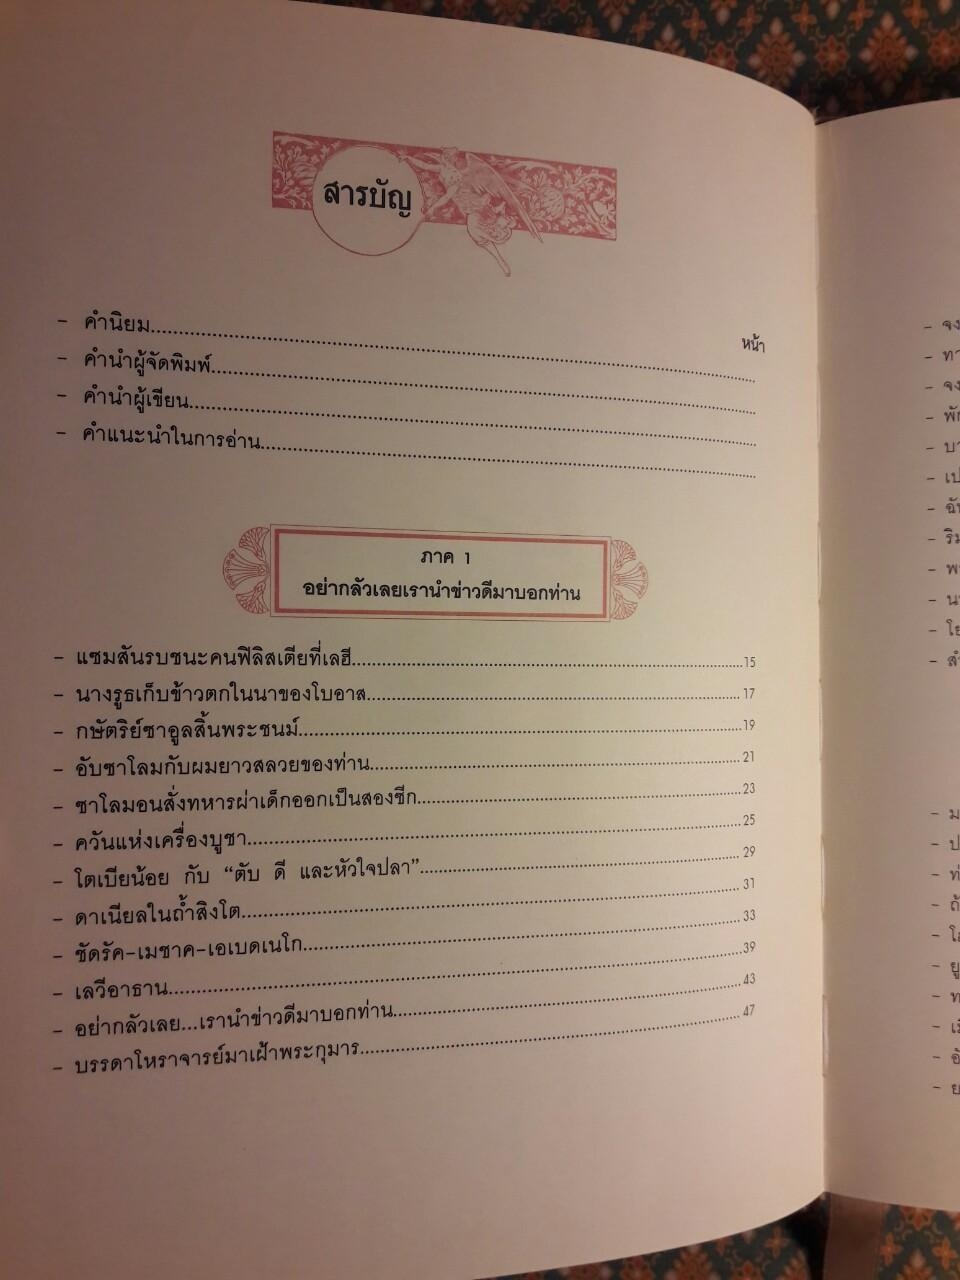 สารบัญ
หน้า
- คำนิยม
- คำนำผู้จัดพิมพ์
- คำนำผู้เขียน
- คำแนะนำในการอ่าน
ภาค 1
อย่ากลัวเลยเรานำข่าวดีมาบอกท่าน
- แซมสันรบชนะคนฟิลิสเตียที่เลฮี 15
- นางรูธเก็บข้าวตกในนาของโบอาส 17
- กษัตริย์ซาอูลสิ้นพระชนม์ 19
- อับซาโลมกับผมยาวสลวยของท่าน 21
- ซาโลมอนสั่งทหารผ่าเด็กออกเป็นสองซีก 23
- ควันแห่งเครื่องบูชา 25
- โตเบียน้อย กับ “ตับ ดี และหัวใจปลา” 29
- ดาเนียลในถ้ำสิงโต 31
- ชัดรัค-เมชาค-เอเบดเนโก 33
- เลวีอาธาน 39
- อย่ากลัวเลย...เรานำข่าวดีมาบอกท่าน 43
- บรรดาโหราจารย์มาเฝ้าพระกุมาร 47